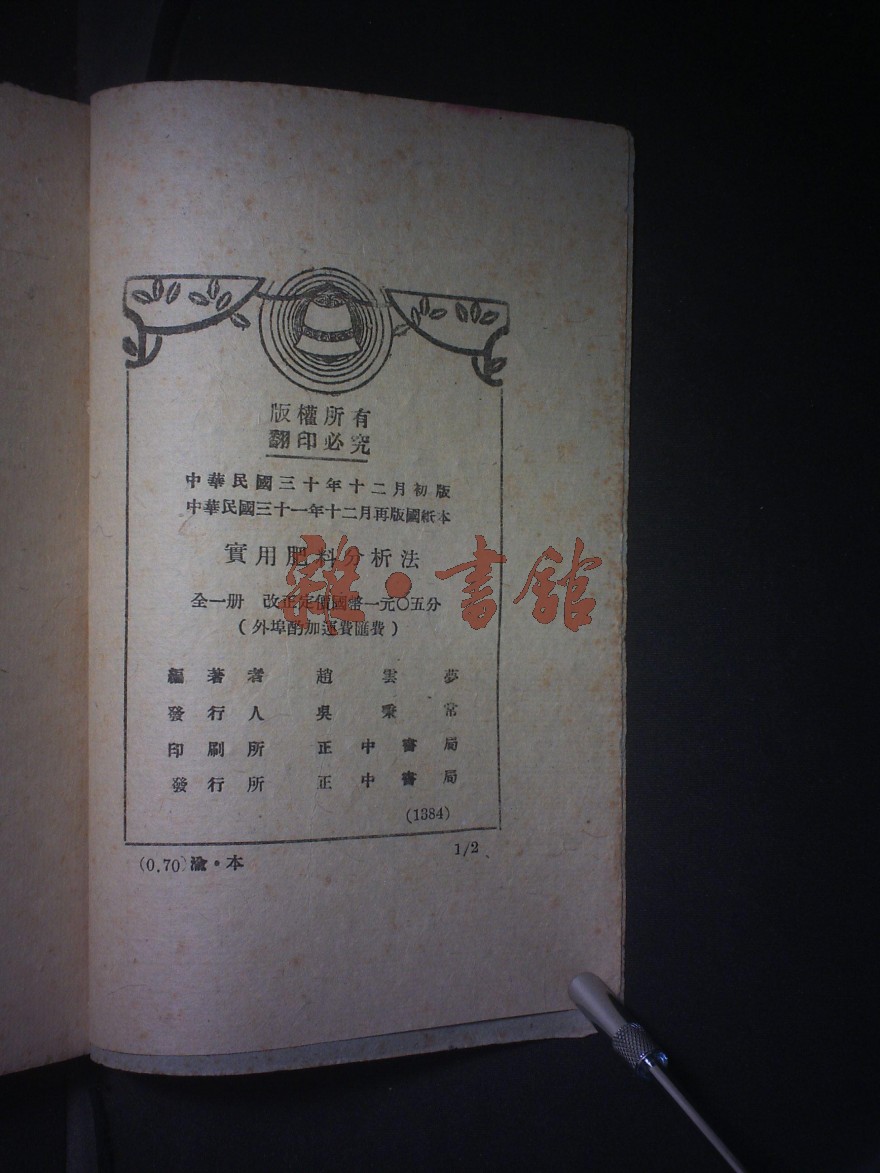 版權所有
翻印必究
中華民國三十年十二月初版
中華民國三十一年十二月再版國紙本
實用肥料分析法
全一册 改正定價國幣一元〇五分
（外埠酌加運費匯費）
編著者 趙雲夢
發行人 吳秉常
印刷所 正中書局
發行所 正中書局
(1384)
1/2
(0.70)渝·本
雜·書館